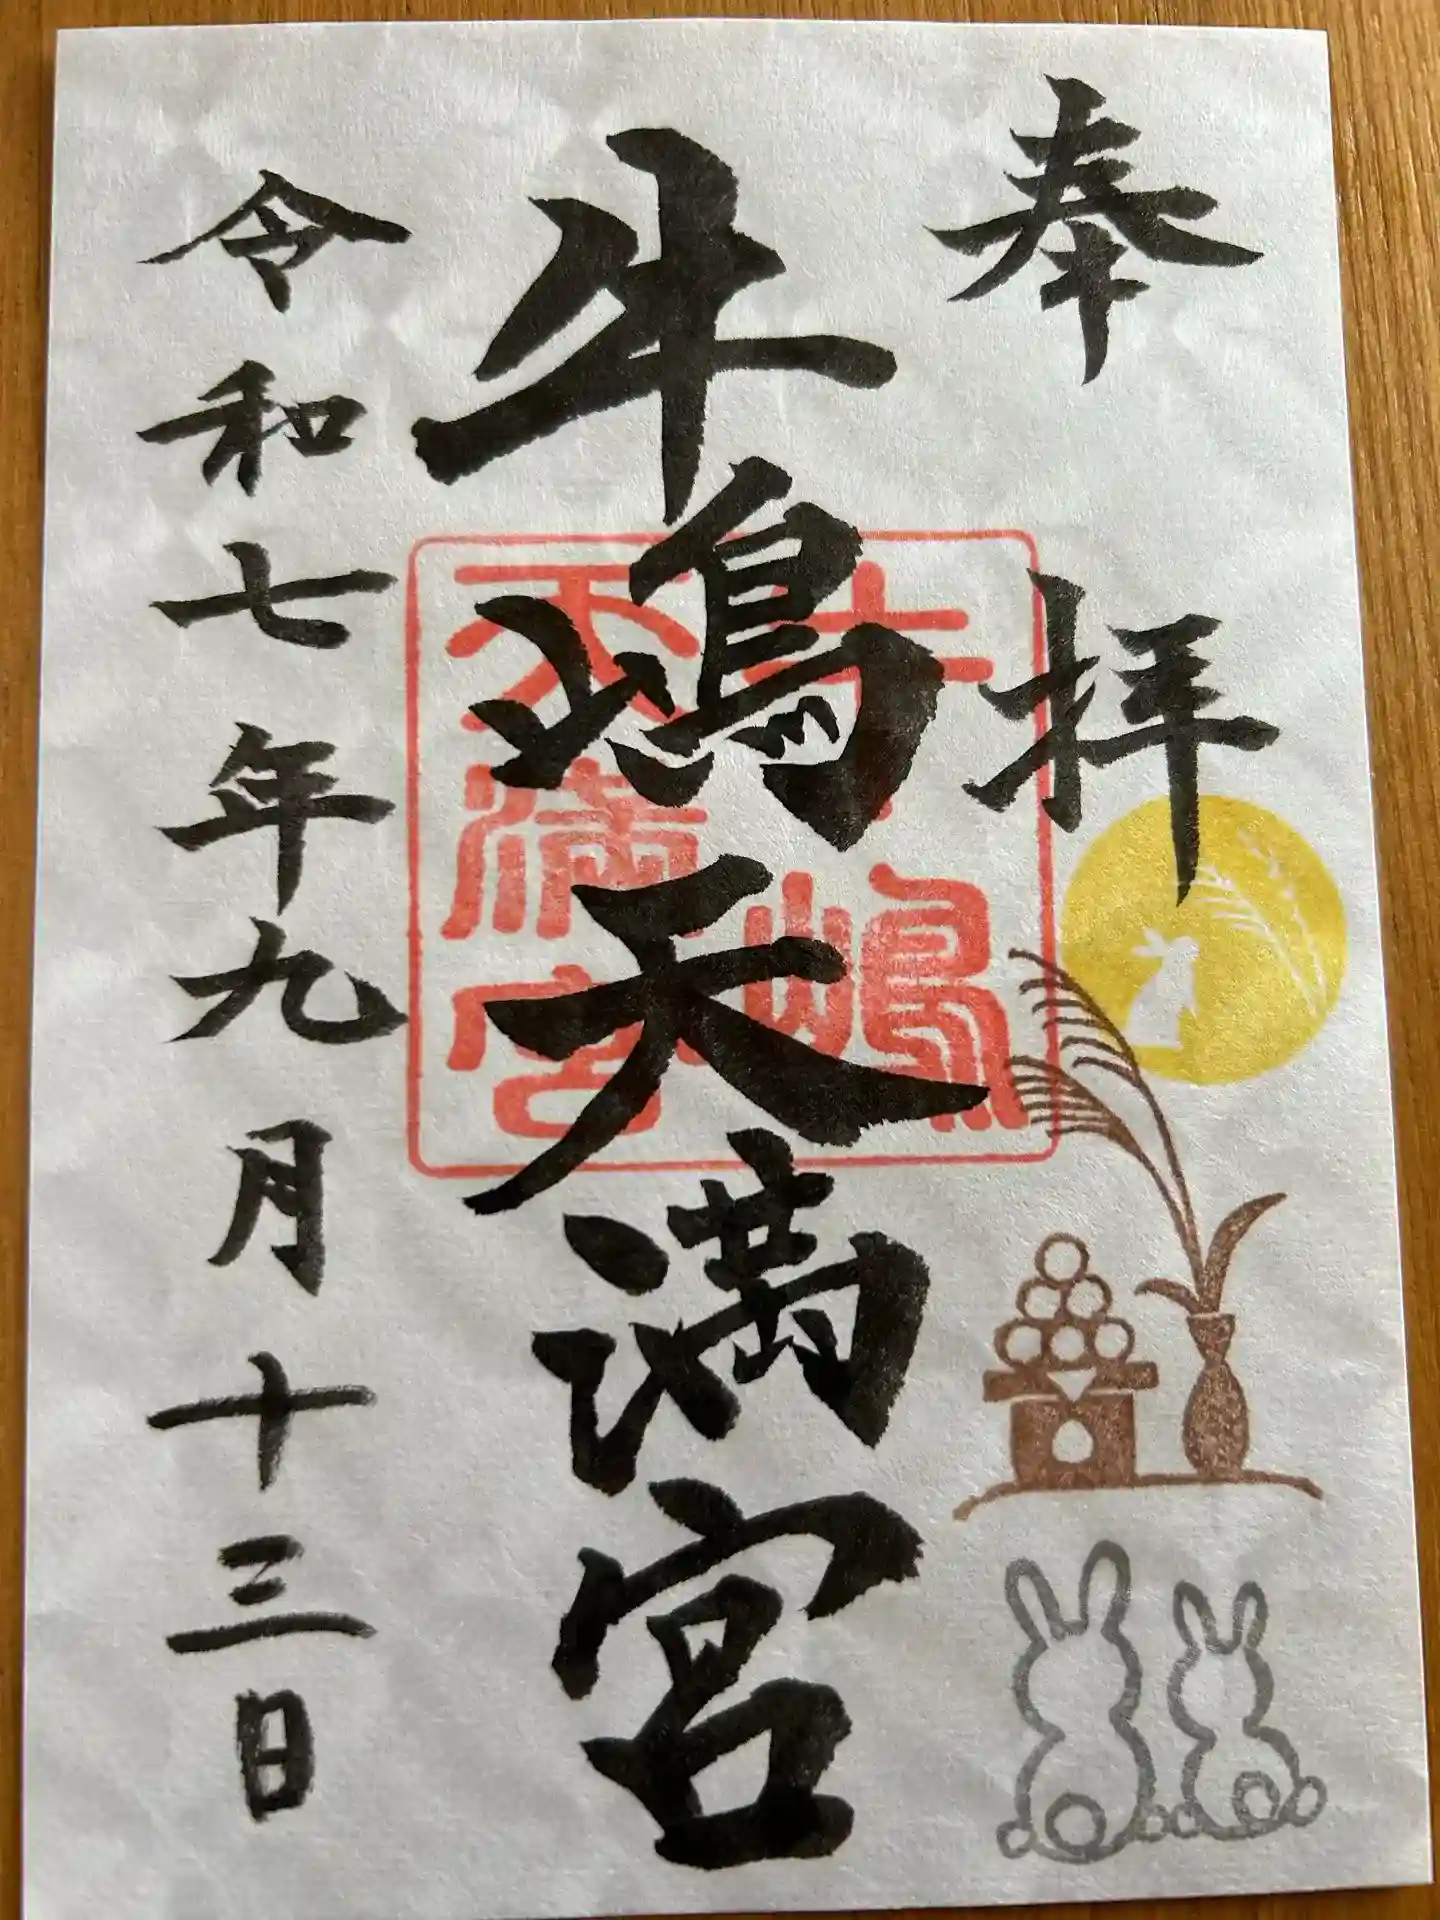 奉拝
牛嶋天満宮
牛嶋
天満宮
令和七年九月十三日